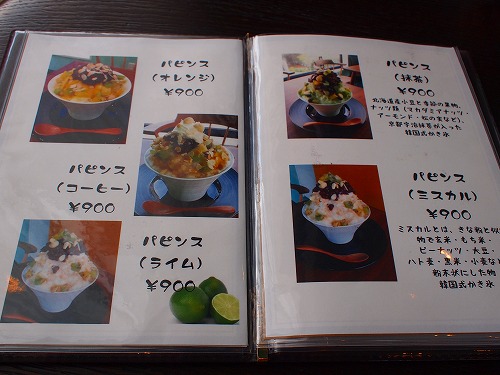 パピンス
(オレンジ)
¥900
パピンス
(コーヒー)
¥900
パピンス
(ライム)
¥900
パピンス
(抹茶)
¥900
北海道産小豆と季節の果物、
ナッツ類(マカダミアナッツ・
アーモンド・松の実など)、
京都宇治抹茶が入った
韓国式かき氷
パピンス
(ミスカル)
¥900
ミスカルとは、きな粉と似
物で玄米・もち米・
ピーナッツ・大豆・
ハト麦・黒米・小麦など
粉末状にした物
韓国式かき氷